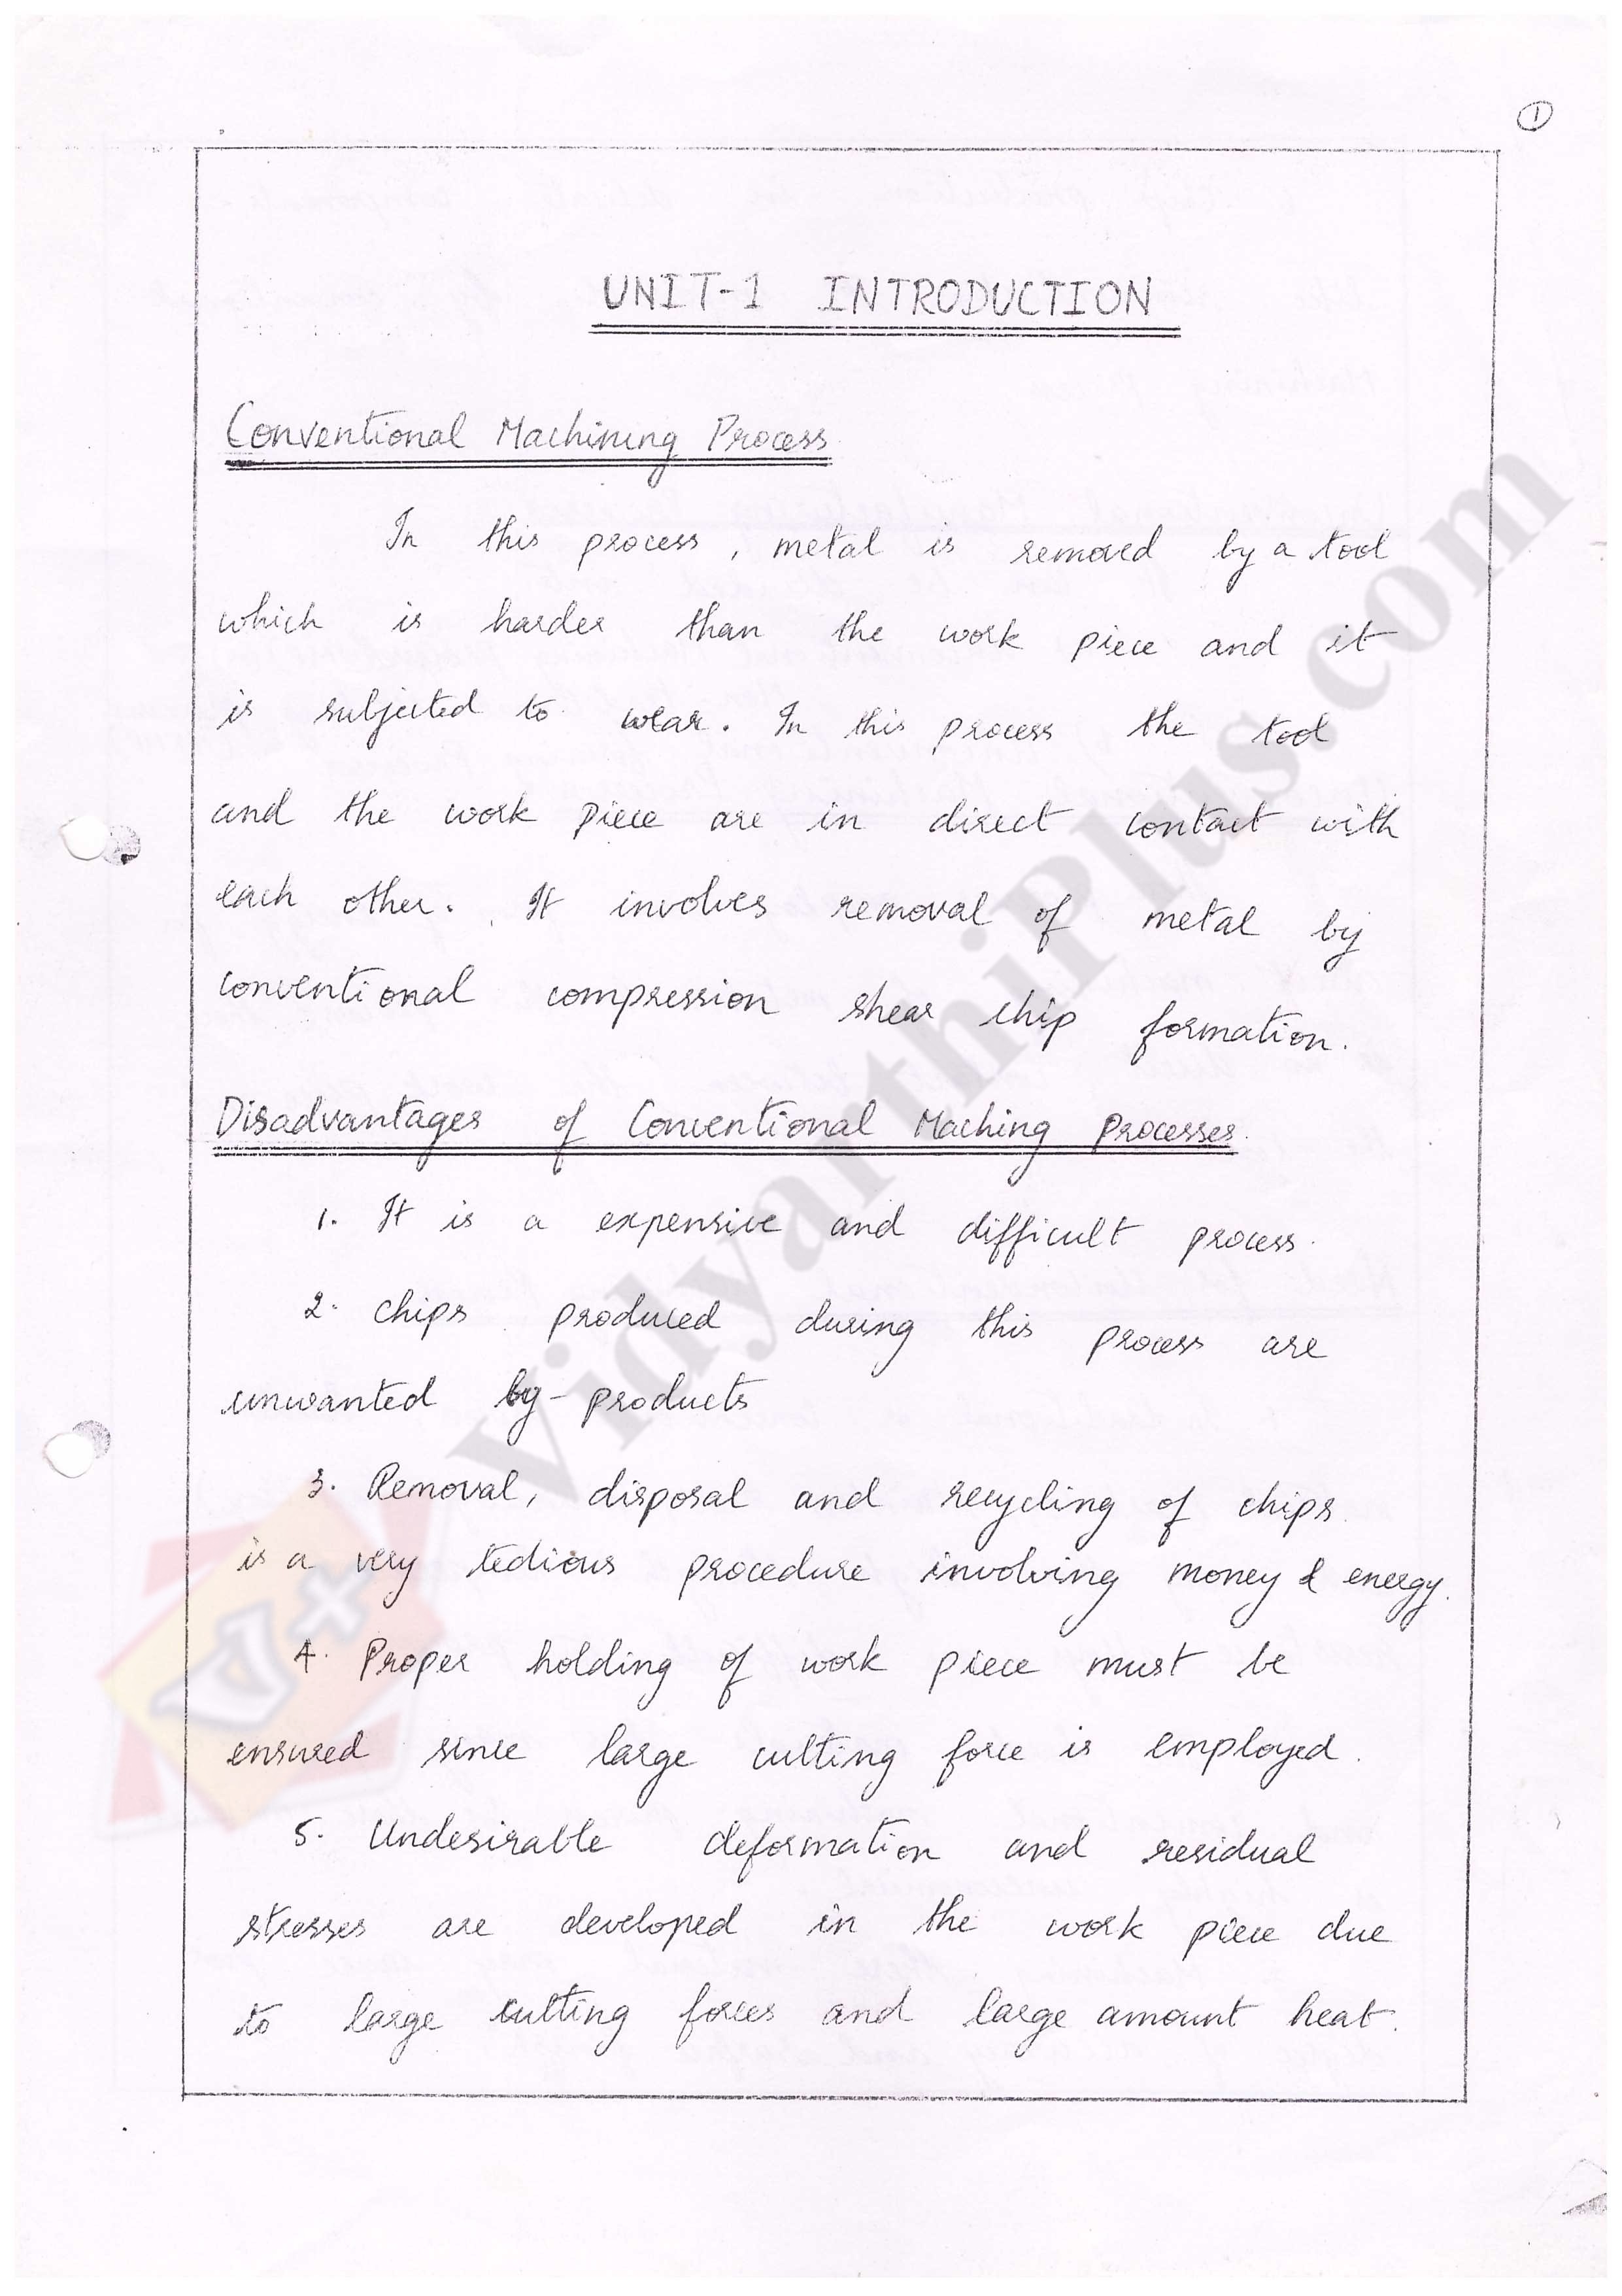 1
UNIT-1 INTRODUCTION
Conventional Machining Process
In this process, metal is removed by a tool
which is harder than the work piece and it
is subjected to wear. In this process the tool
and the work piece are in direct contact with
each other. It involves removal of metal by
conventional compression shear chip formation.
Disadvantages of Conventional Maching Processes.
1. It is a expensive and difficult process.
2. Chips produced during this process are
unwanted by-products
3. Removal, disposal and recycling of chips
is a very tedious procedure involving money & energy.
4. Proper holding of work piece must be
ensured since large cutting force is employed.
5. Undesirable deformation and residual
stresses are developed in the work piece due
to large cutting forces and large amount heat.
VidyarthiPlus.com
V+